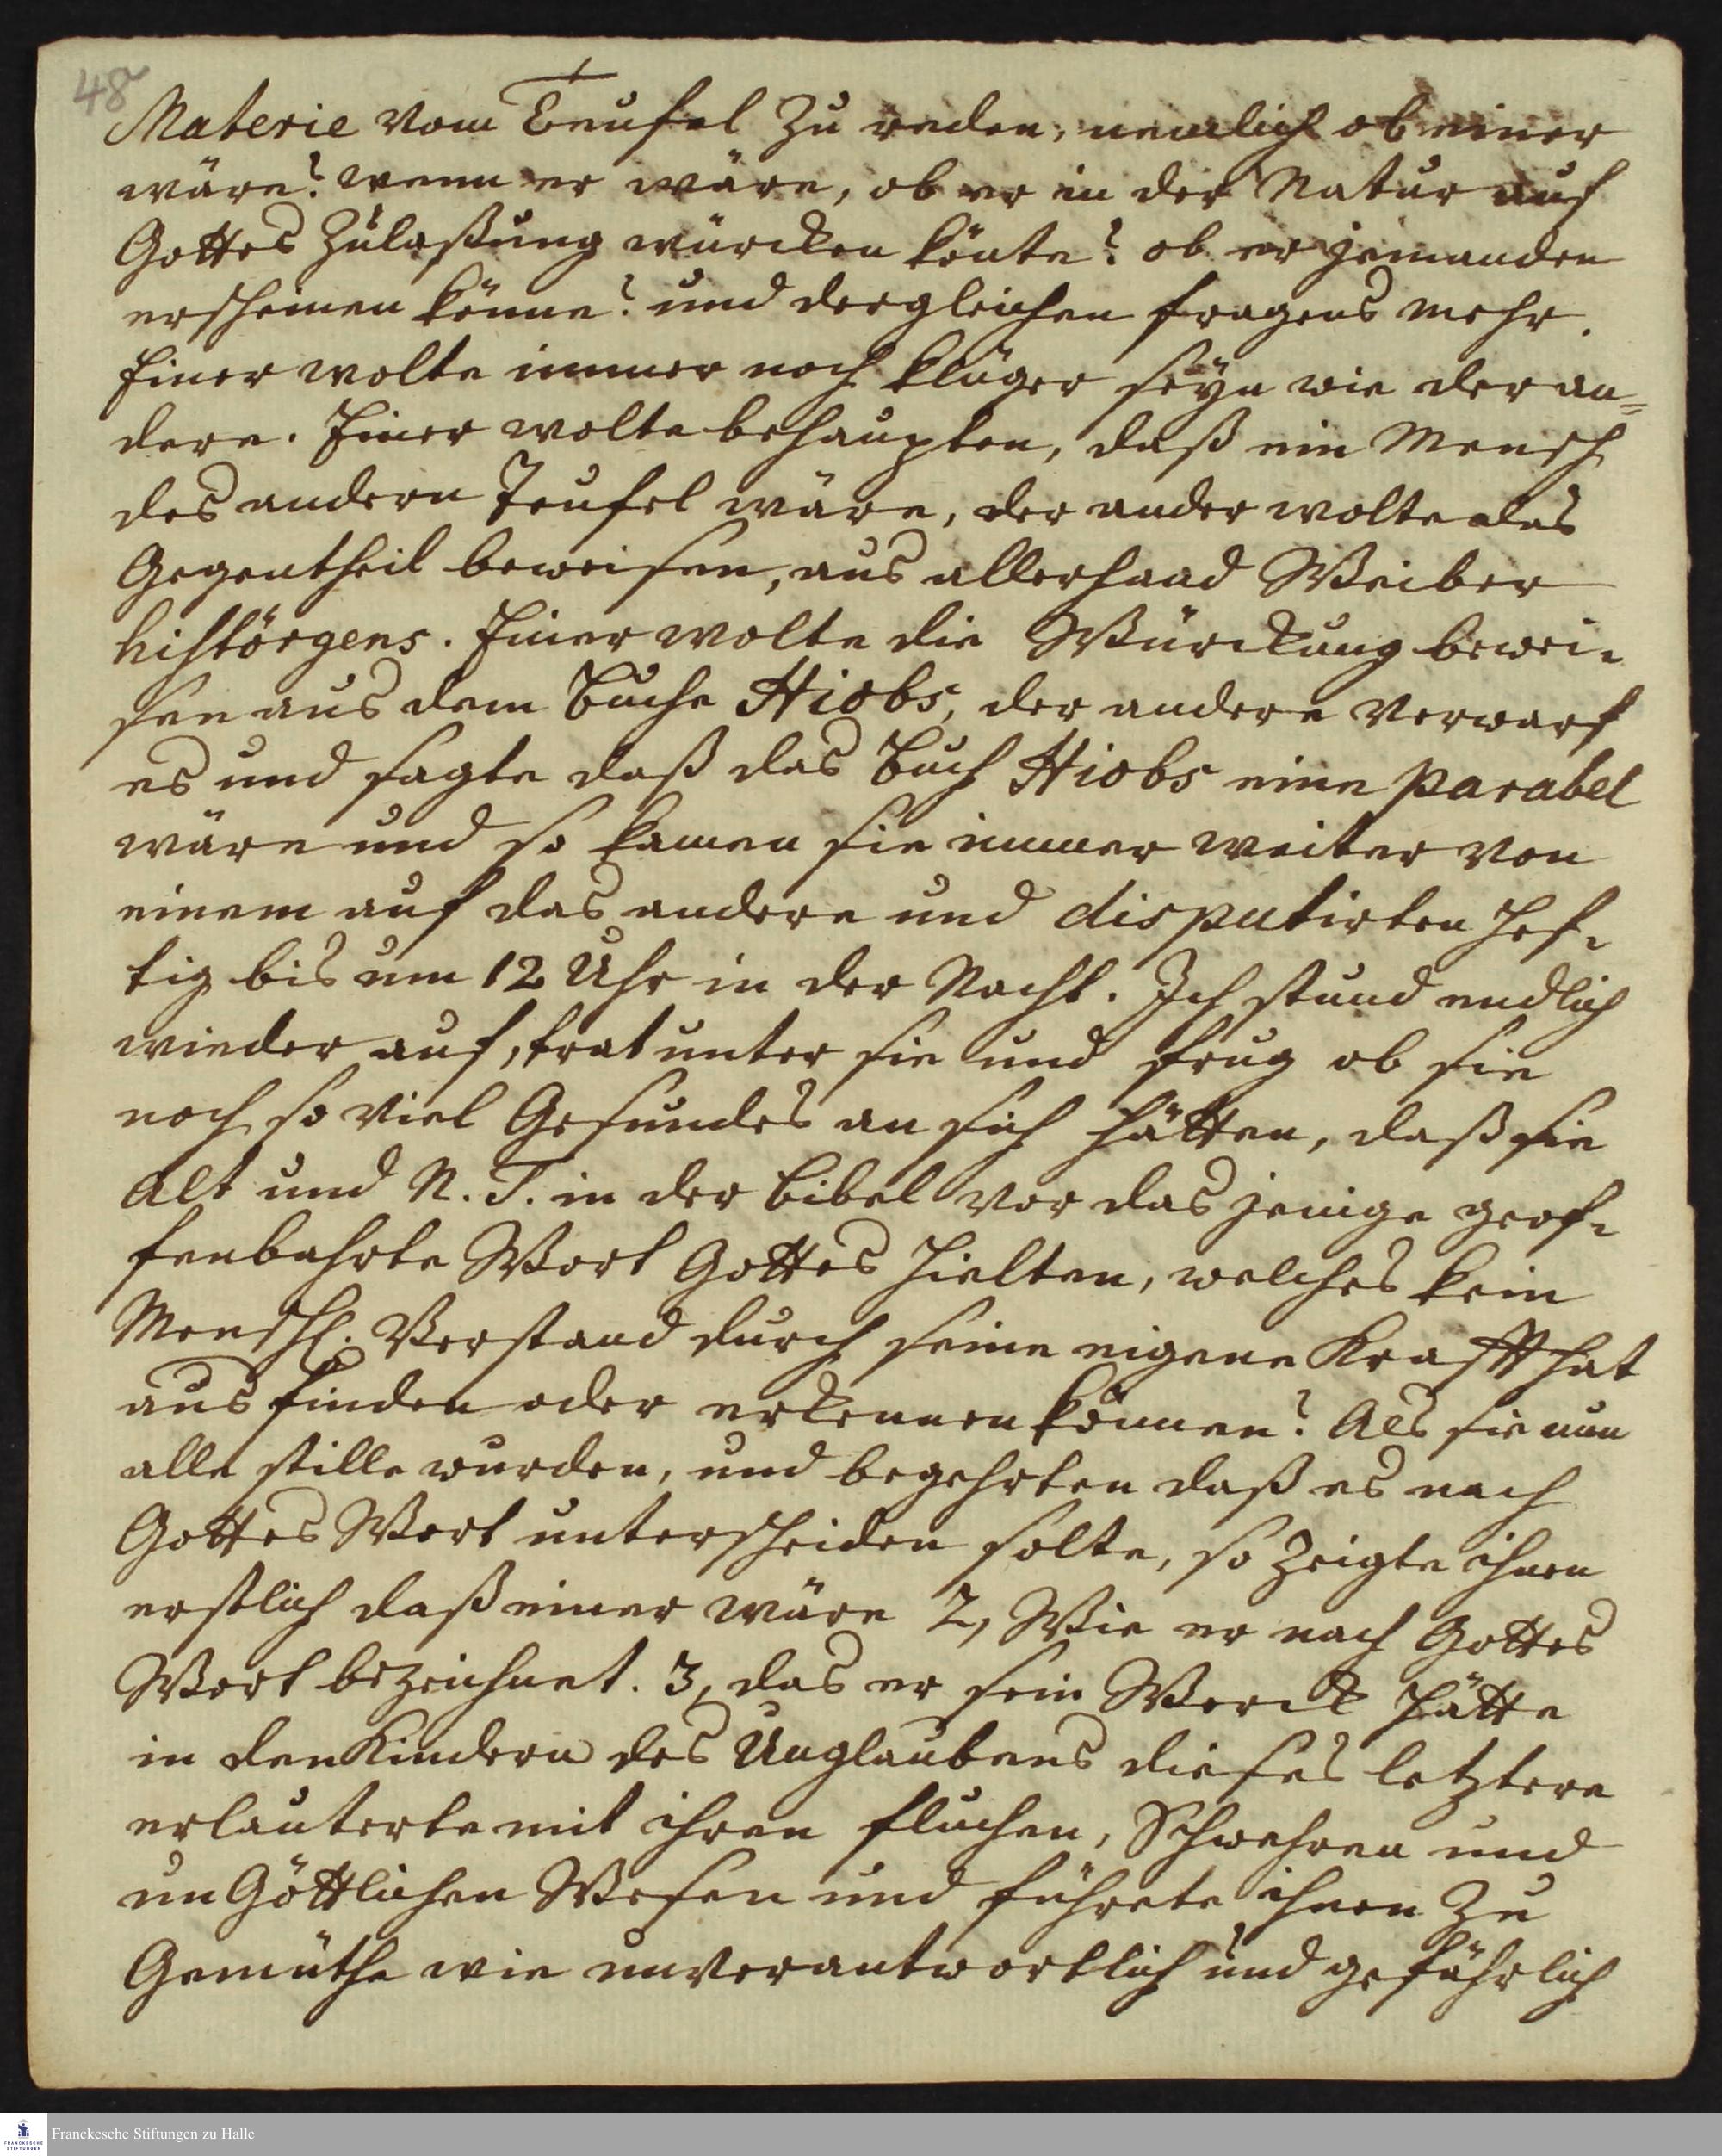 48
Materie vom Teufel zu reden, nemlich ob einer
wäre? wenn er wäre, ob er in der Natur auf
Gottes Zulaßung würcken könte? ob er jemanden
erscheinen könne? und dergleichen fragens mehr.
Einer wolte immer noch klüger seyn wie der an=
dere. Einer wolte behaupten, daß ein Mensch
des andern Teufel wäre, der ander wolte das
Gegentheil beweisen, aus allerhand Weiber
histörgens. Einer wolte die Würckung bewei-
sen aus dem Buche Hiobs, der andere verwarf
es und sagte daß das Buch Hiobs eine parabel
wäre und so kamen sie immer weiter von
einem auf das andere und disputirten hef-
tig bis um 12 Uhr in der Nacht. Ich stund endlich
wieder auf, trat unter sie und frug ob sie
noch so viel Gesundes an sich hätten, daß sie
Alt und N. T. in der Bibel vor das jenige geof-
fenbahrte Wort Gottes hielten, welches kein
Menschl. Verstand durch seine eigene Krafft hat
aus finden oder erkennen können? Als sie nun
alle stille wurden, und begehrten daß es nach
Gottes Wort unterscheiden solte, so zeigte ihnen
erstlich daß einer wäre 2, Wie er nach Gottes
Wort bezeichnet. 3, das er sein Werck hätte
in den Kindern des Unglaubens dieses letztere
erlauterte mit ihren fluchen, Schwehren und
un Göttlichen Wesen und führete ihnen zu
Gemüthe wie unverantwortlich und gefährlich
FRANCKESCHE STIFTUNGEN
Franckesche Stiftungen zu Halle